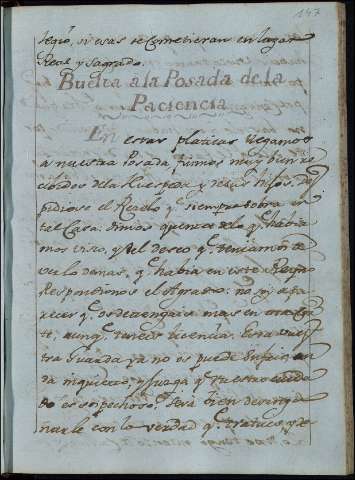 147
legio, si esas se cometieran en lugar
Real y Sagrado.
Buelta a la Posada de la
Paciencia
En estas platicas llegamos
a nuestra Posada, fuimos muy bien re
cevidos de la Huespeda y de sus hijos,
pidiose el q.e siempre sobra en
tal Casa, dimos quenta de lo q.e habia
mos visto, y el deseo q.e teniamos de
ver lo demas, q.e habia en este Reyno
Respondionos el Agravio: no
q.e os desengañeis mas en
aunq.e licencia. Era vues
tra Guarda ya no os puede sufrir, an
da inquieto, y juzga q.e vuestro cuida
do es sospechoso, será bien desenga
ñarle con la verdad q.e tratais, y de